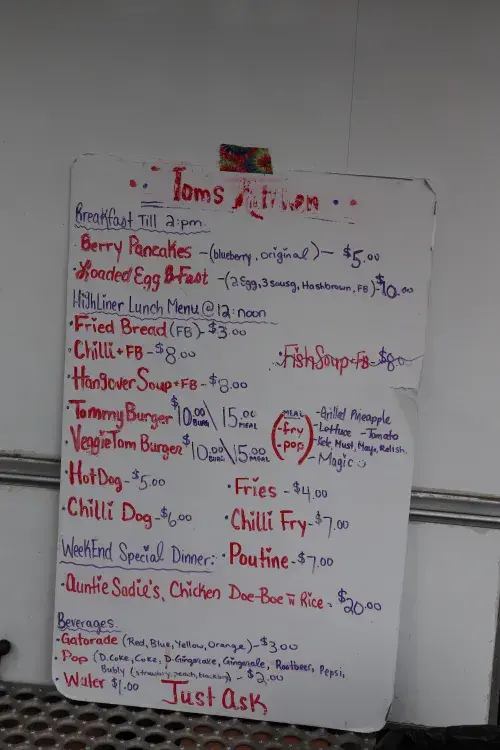 Toms
Breakfast Till 2:pm
Berry Pancakes -(blueberry, original)- $5.00
Loaded Egg B-Fast -(2 Egg, 3 sausg, Hashbrown, FB)-$10.00
HighLiner Lunch Menu @ 12:noon
·Fried Bread (FB)- $3.00
·Chilli+FB -$8.00
·FishSoup+FB-$8.00
·HangoverSoup+FB -$8.00
·TommyBurger $10.00 BURG \ 15.00 MEAL
·VeggieTomBurger $10.00 BURG \ 15.00 MEAL
MEAL
-fry
-pop
-Grilled Pineapple
-Lettuce -Tomato
-Ketc, Must, Mayo, Relish.
-Magic
·HotDog-$5.00
·Fries -$4.00
·Chilli Dog-$6.00
·Chilli Fry-$7.00
WeekEnd Special Dinner:
·Poutine-$7.00
·Auntie Sadie's, Chicken Doe-Boe n Rice - $20.00
Beverages.
·Gatorade (Red, Blue, Yellow, Orange)-$3.00
·Pop (D.Coke, Coke, D.Gingerale, Gingerale, Rootbeer, Pepsi,
Bubly (strawbry, peach, blackbry) -$2.00
·Water $1.00
Just Ask